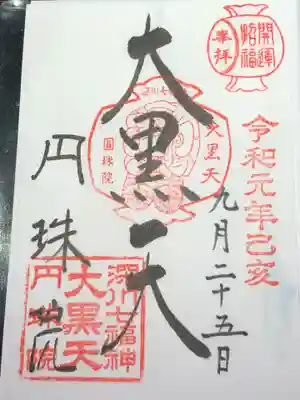 開運
招福
奉拝
令和元年己亥
九月二十五日
大黒天
七川深
大黒天
圓珠院
円珠院
深川七福神
大黒天
円珠院